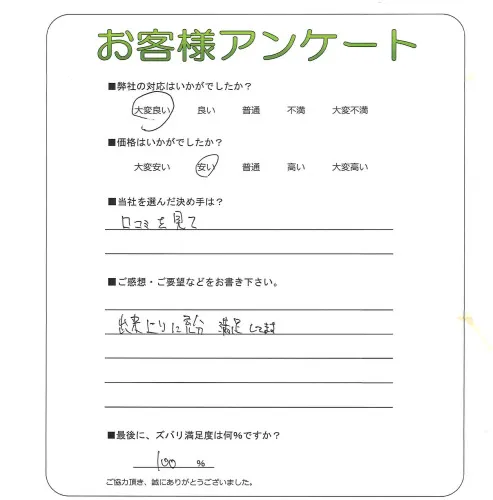 お客様アンケート
■弊社の対応はいかがでしたか？
大変良い 良い 普通 不満 大変不満
■価格はいかがでしたか？
大変安い 安い 普通 高い 大変高い
■当社を選んだ決め手は？
口コミを見て
■ご感想・ご要望などをお書き下さい。
出来上りに充分 満足してます
■最後に、ズバリ満足度は何%ですか？
100 %
ご協力頂き、誠にありがとうございました。